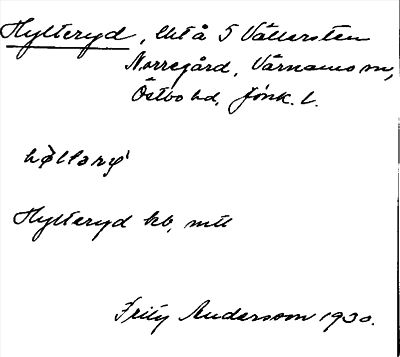 Hylteryd, lht å 5 Vällersten
Norregård, Värnamo sn,
Östbo hd, Jönk. l.
hỳltəryˈ
Hylteryd kb, mtl
Frity Andersson 1930.